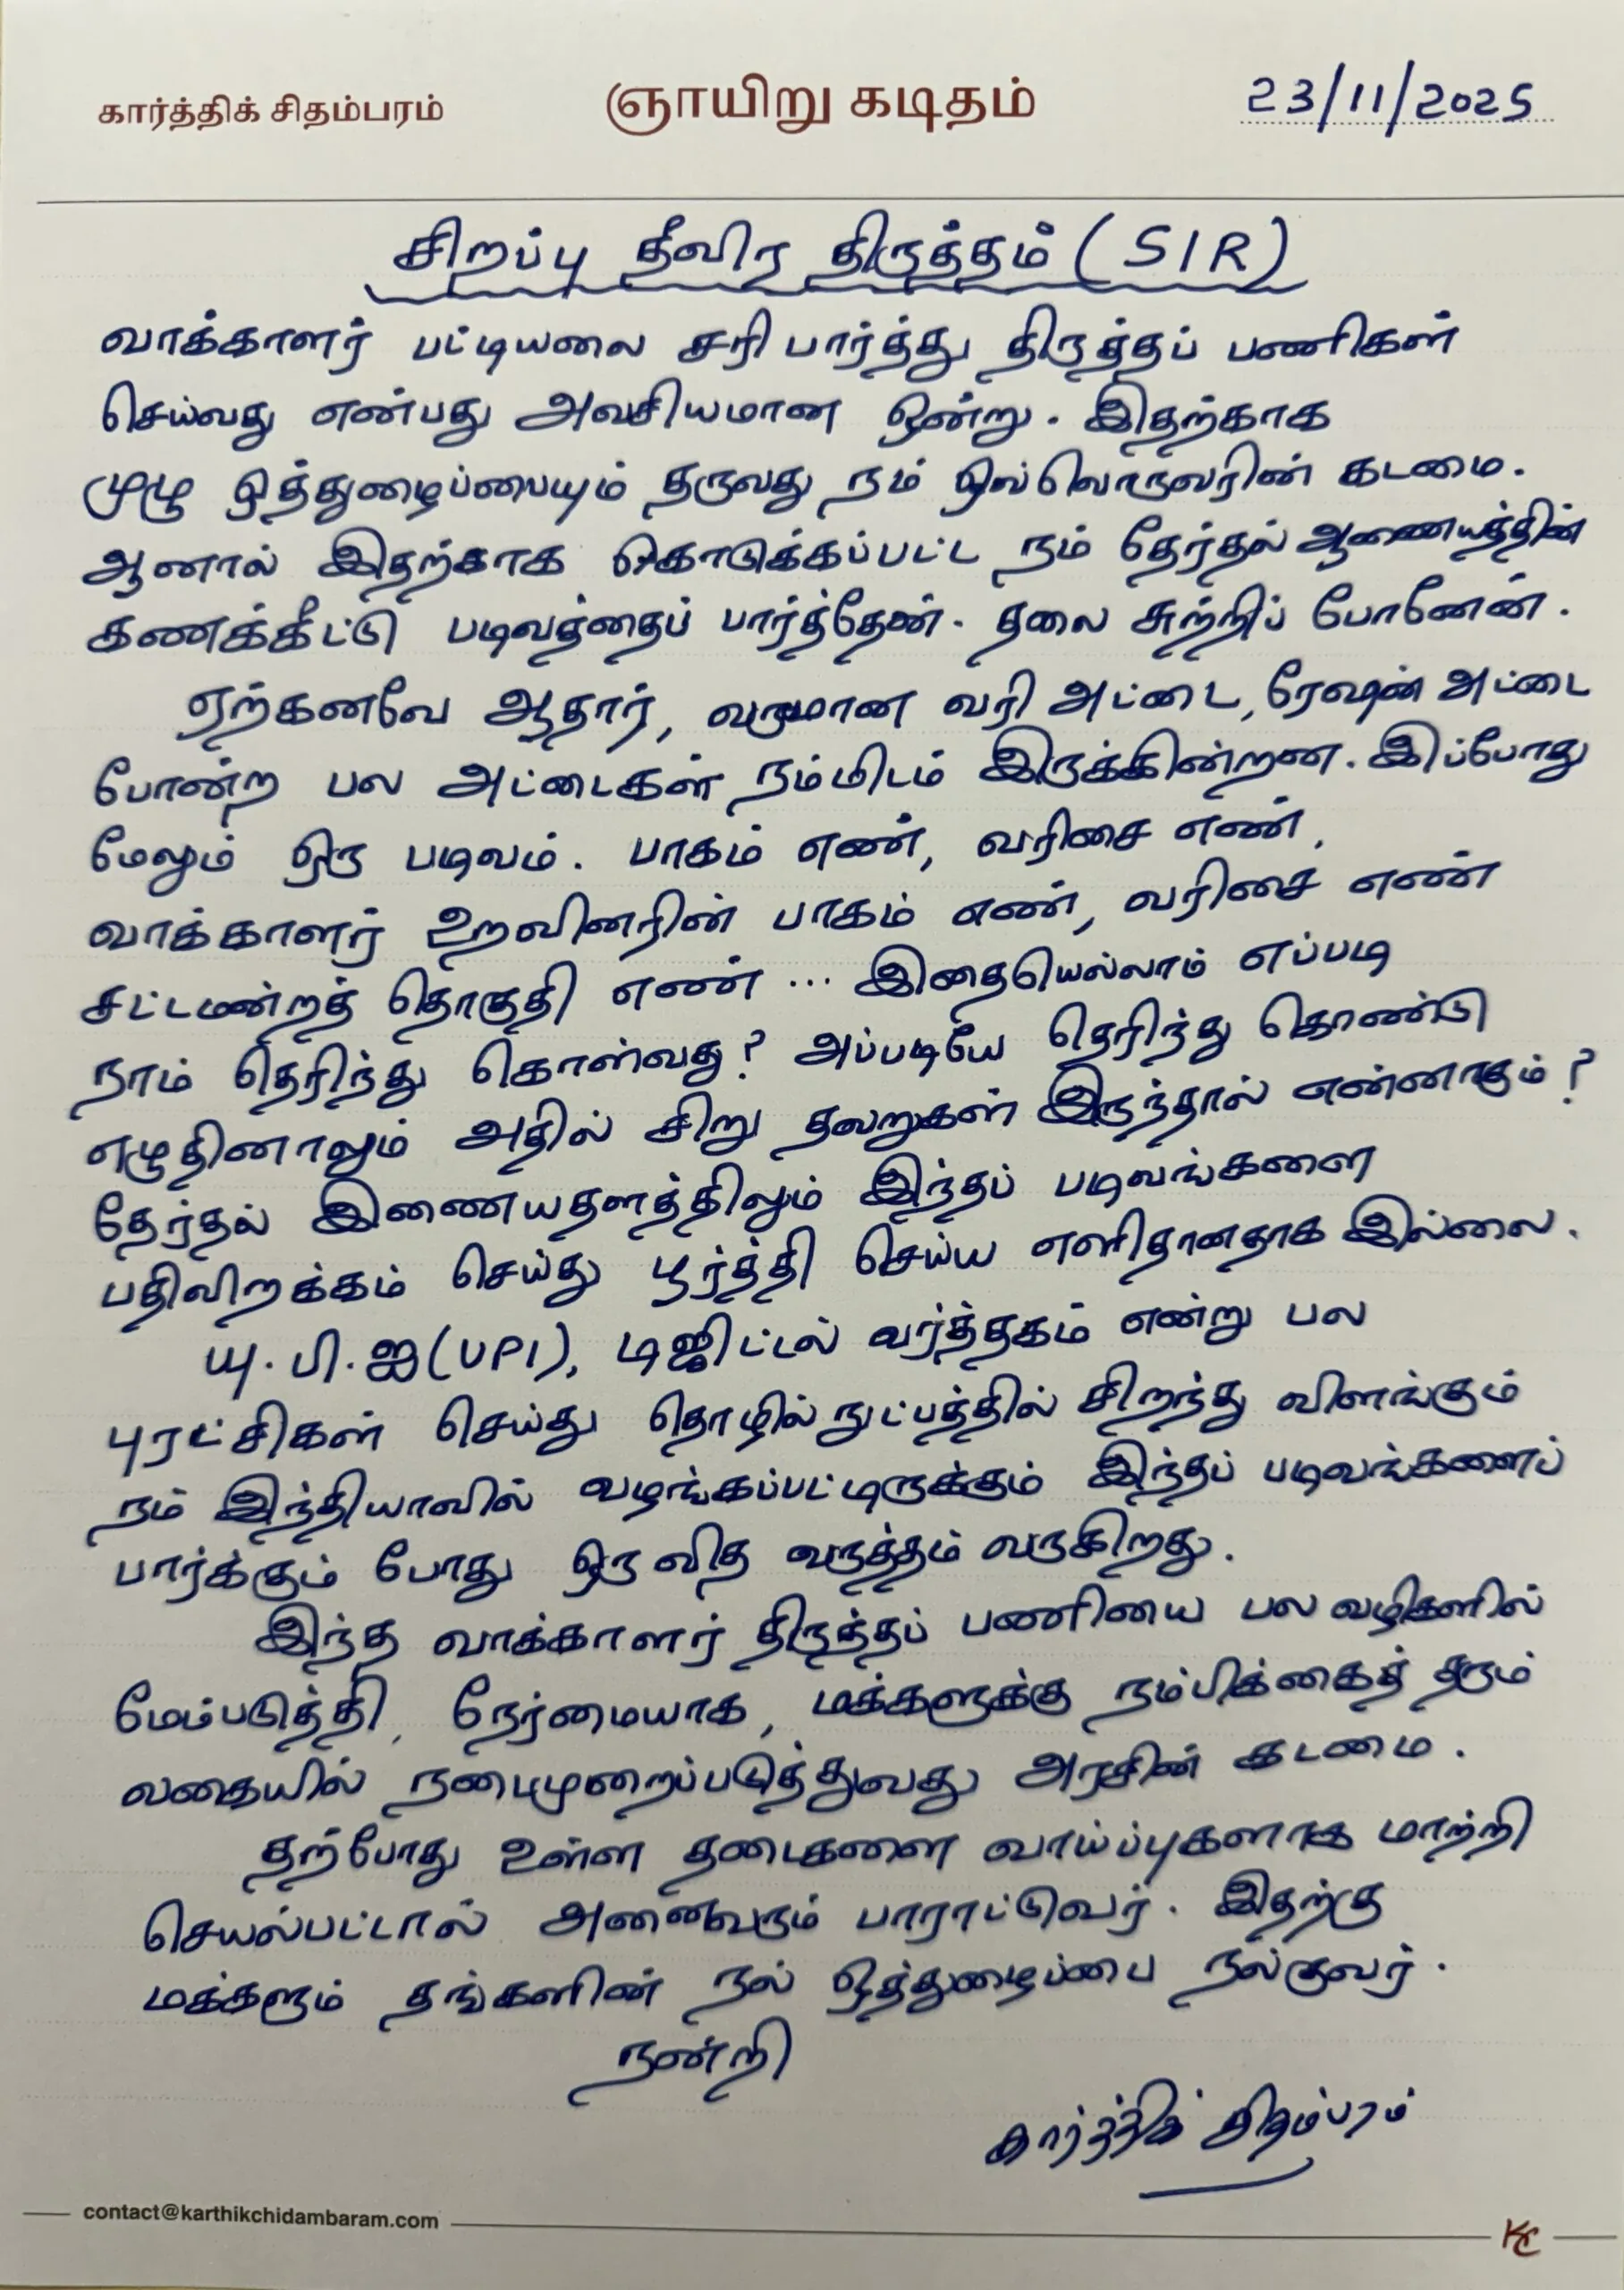 கார்த்திக் சிதம்பரம் ஞாயிறு கடிதம் 23/11/2025
சிறப்பு தீவிர திருத்தம் (SIR)
வாக்காளர் பட்டியலை சரி பார்த்து திருத்தப் பணிகள்
செய்வது என்பது அவசியமான ஒன்று. இதற்காக
முழு ஒத்துழைப்பையும் தருவது நம் ஒவ்வொருவரின் கடமை.
ஆனால் இதற்காக கொடுக்கப்பட்ட நம் தேர்தல் ஆணையத்தின்
கணக்கீட்டு படிவத்தைப் பார்த்தேன். தலை சுற்றிப் போனேன்.
ஏற்கனவே ஆதார், வருமான வரி அட்டை, ரேஷன் அட்டை
போன்ற பல அட்டைகள் நம்மிடம் இருக்கின்றன. இப்போது
மேலும் ஒரு படிவம். பாகம் எண், வரிசை எண்,
வாக்காளர் உறவினரின் பாகம் எண், வரிசை எண்
சட்டமன்றத் தொகுதி எண் ... இதையெல்லாம் எப்படி
நாம் தெரிந்து கொள்வது? அப்படியே தெரிந்து கொண்டு
எழுதினாலும் அதில் சிறு தவறுகள் இருந்தால் என்னாகும்?
தேர்தல் இணையதளத்திலும் இந்தப் படிவங்களை
பதிவிறக்கம் செய்து பூர்த்தி செய்ய எளிதானதாக இல்லை.
யு.பி.ஐ (UPI), டிஜிட்டல் வர்த்தகம் என்று பல
புரட்சிகள் செய்து தொழில் நுட்பத்தில் சிறந்து விளங்கும்
நம் இந்தியாவில் வழங்கப்பட்டிருக்கும் இந்தப் படிவங்களைப்
பார்க்கும் போது ஒரு வித வருத்தம் வருகிறது.
இந்த வாக்காளர் திருத்தப் பணியை பல வழிகளில்
மேம்படுத்தி, நேர்மையாக, மக்களுக்கு நம்பிக்கைத் தரும்
வகையில் நடைமுறைப்படுத்துவது அரசின் கடமை.
தற்போது உள்ள தடைகளை வாய்ப்புகளாக மாற்றி
செயல்பட்டால் அனைவரும் பாராட்டுவர். இதற்கு
மக்களும் தங்களின் நல் ஒத்துழைப்பை நல்குவர்.
நன்றி
கார்த்திக் சிதம்பரம்
contact@karthikchidambaram.com KC